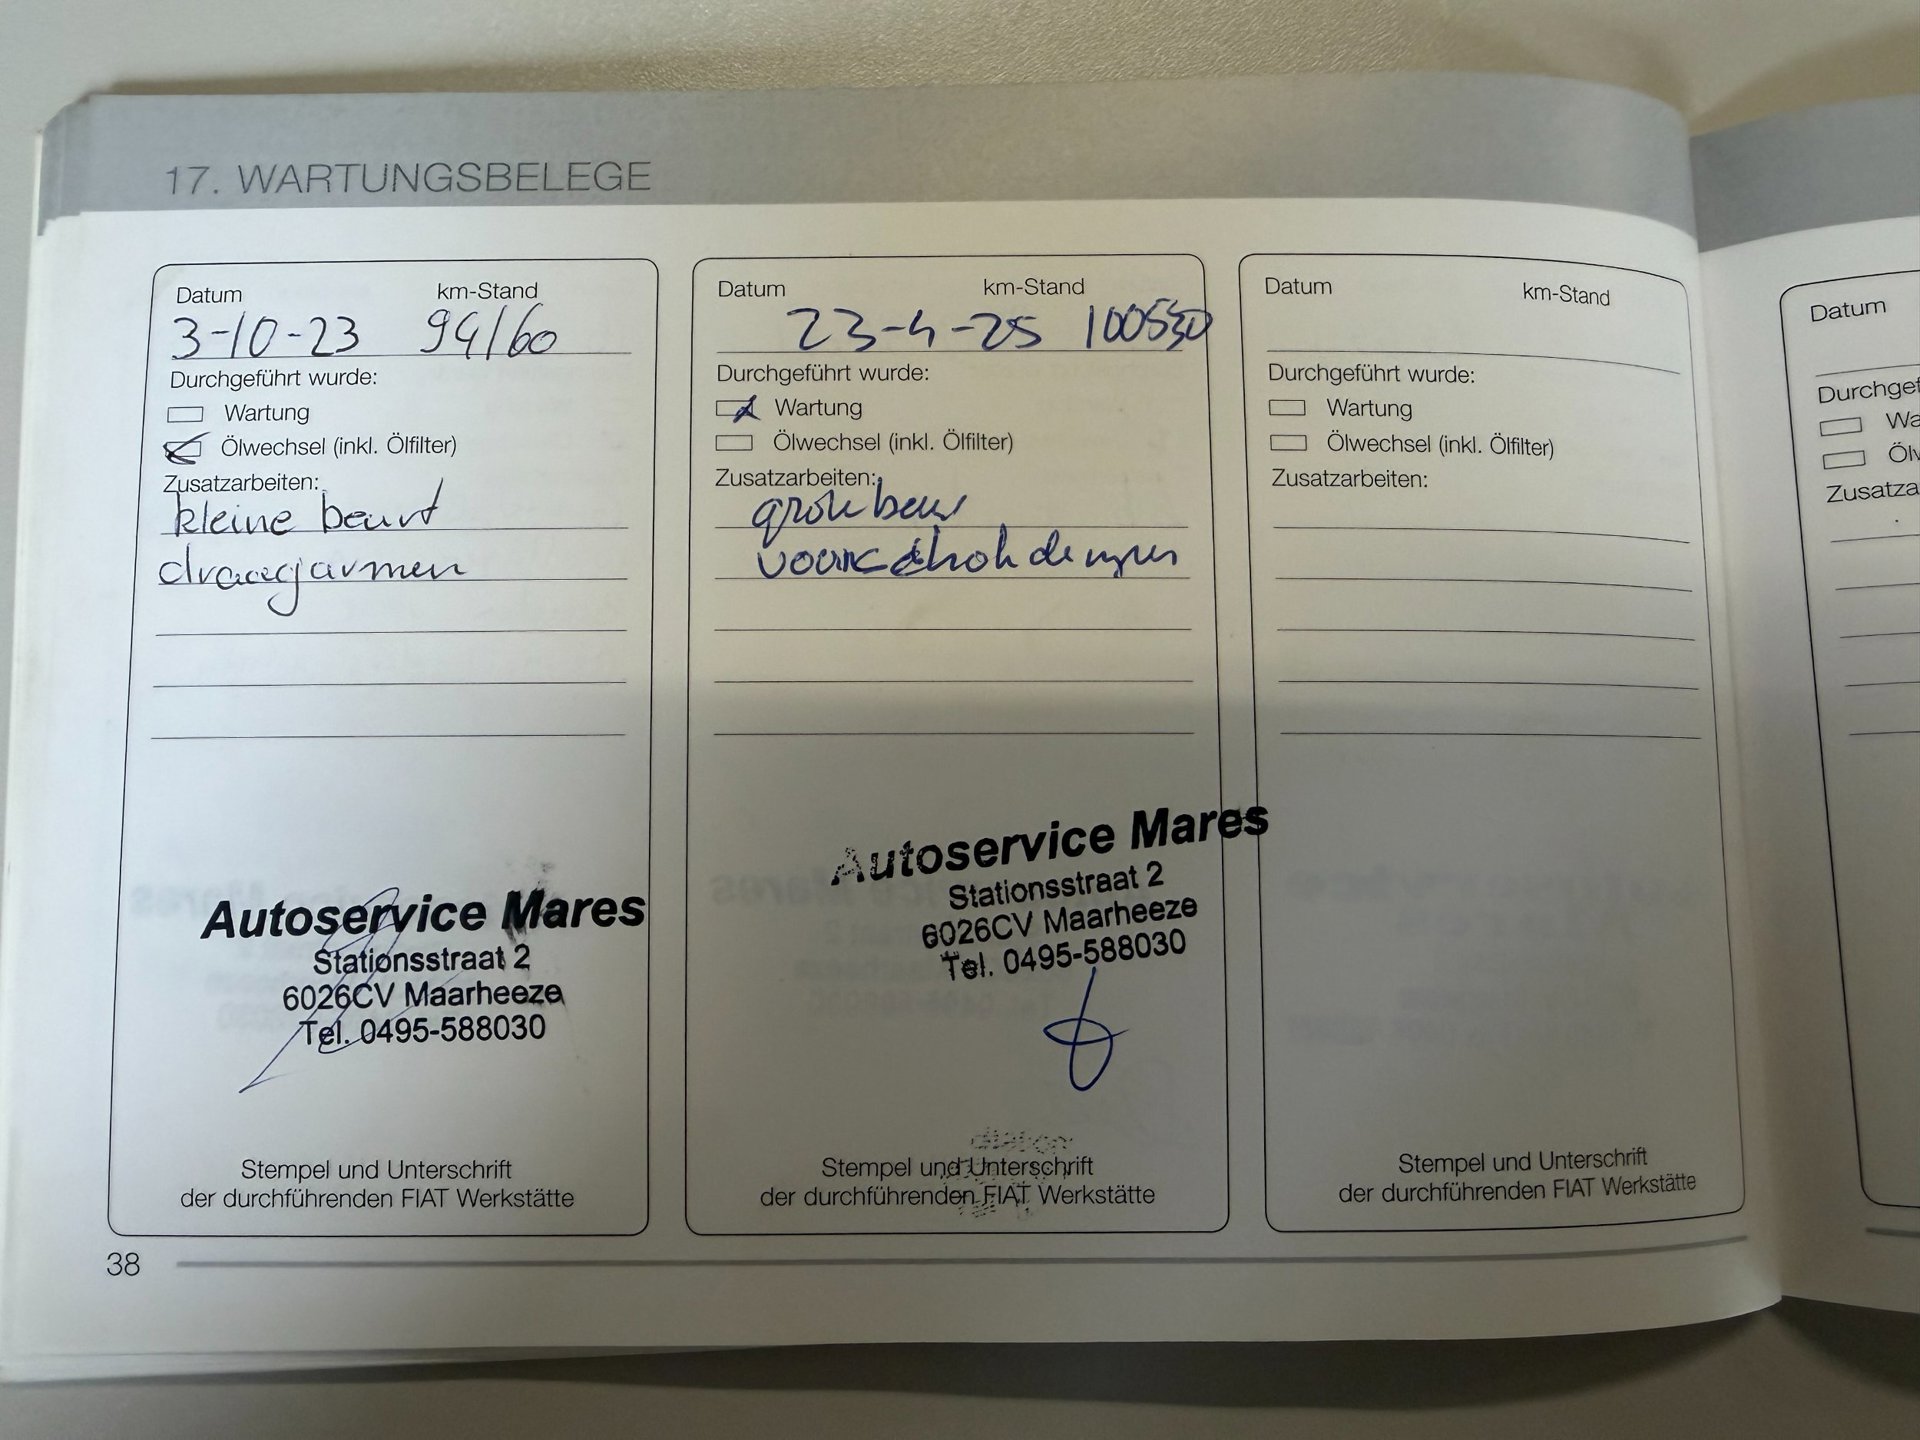 17. WARTUNGSBELEGE
Datum km-Stand
3-10-23 94160
Durchgeführt wurde:
Wartung
Ölwechsel (inkl. Ölfilter)
Zusatzarbeiten:
kleine beurt
draagarmen
Autoservice Mares
Stationsstraat 2
6026CV Maarheeze
Tel. 0495-588030
Stempel und Unterschrift
der durchführenden FIAT Werkstätte
Datum km-Stand
23-4-25 100530
Durchgeführt wurde:
Wartung
Ölwechsel (inkl. Ölfilter)
Zusatzarbeiten:
Autoservice Mares
Stationsstraat 2
6026CV Maarheeze
Tel. 0495-588030
Stempel und Unterschrift
der durchführenden FIAT Werkstätte
Datum km-Stand
Durchgeführt wurde:
Wartung
Ölwechsel (inkl. Ölfilter)
Zusatzarbeiten:
Stempel und Unterschrift
der durchführenden FIAT Werkstätte
38
Datum
Durchgef
Wa
Ölw
Zusatza